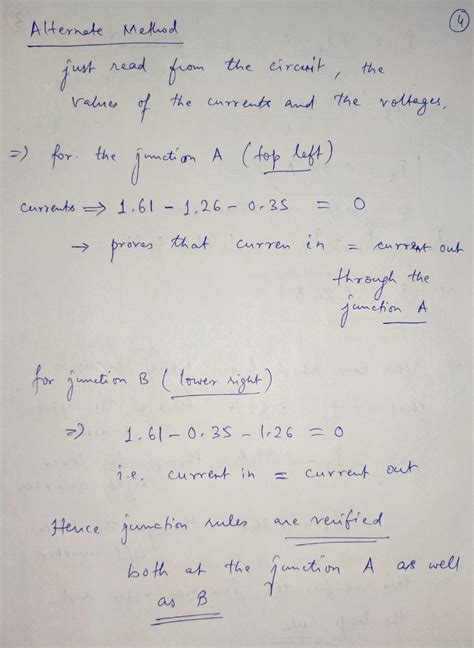 4
Alternate Method
just read from the circuit, the
values of the currents and the voltages,
=> for the junction A (top left)
currents => 1.61 - 1.26 - 0.35 = 0
→ proves that curren in = current out
through the
junction A
for junction B (lower right)
=> 1.61 - 0.35 - 1.26 = 0
i.e. current in = current out
Hence junction rules are verified
both at the junction A as well
as B